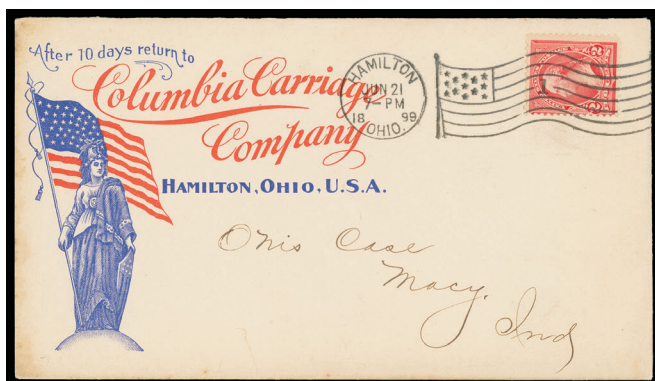 After 10 days return to
Columbia Carriage
Company
HAMILTON, OHIO, U.S.A.
HAMILTON
JUN 21
7-PM
18 99
OHIO.
2 2
1
Case
Macy,
Ind